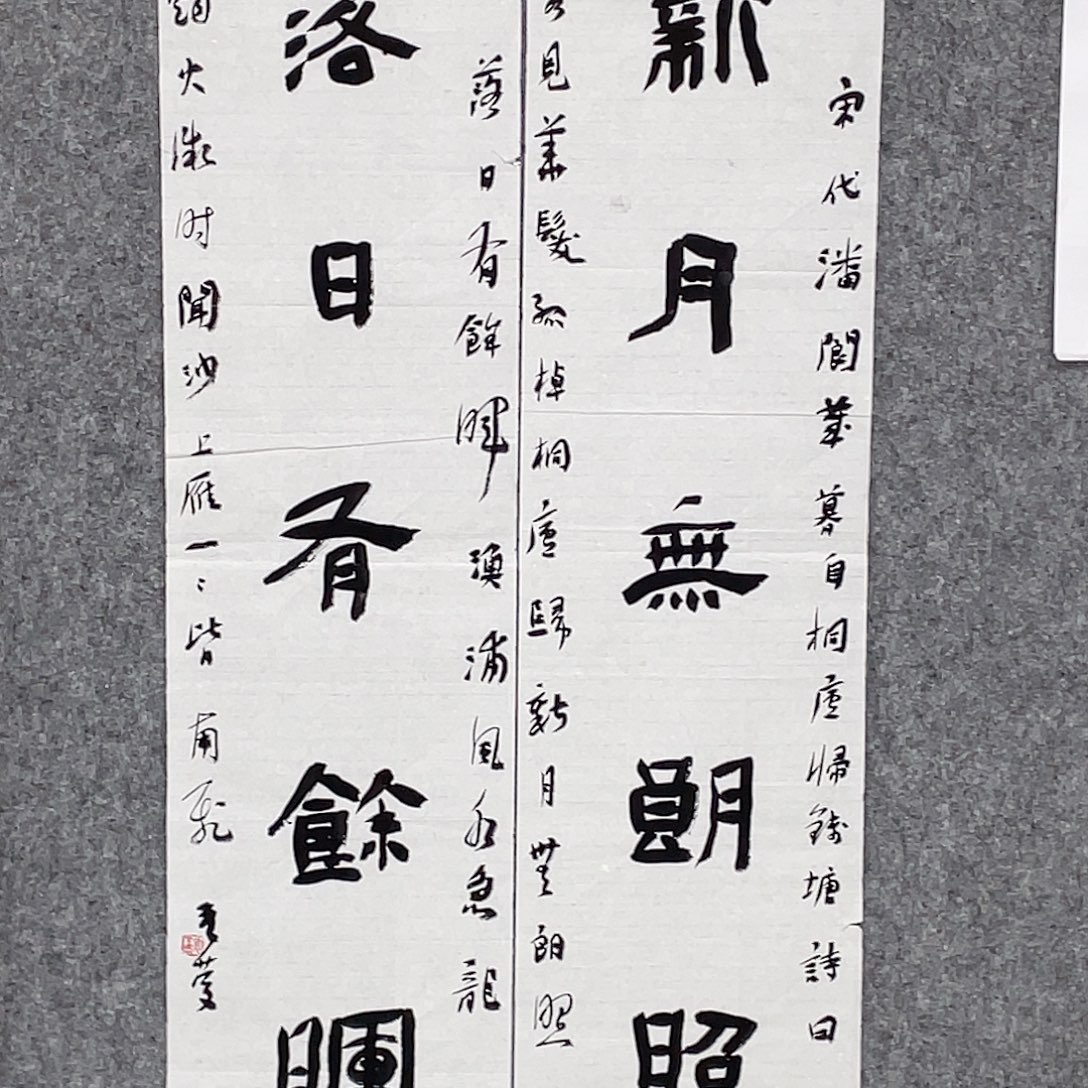 宋代潘閬歲暮自桐廬歸錢塘詩曰
新月無朗照
客見華髮孤棹桐廬歸新月無朗照
落日有餘暉漁浦風水急龍
落日有餘暉
煙火微时聞沙上雁一〻皆南飛